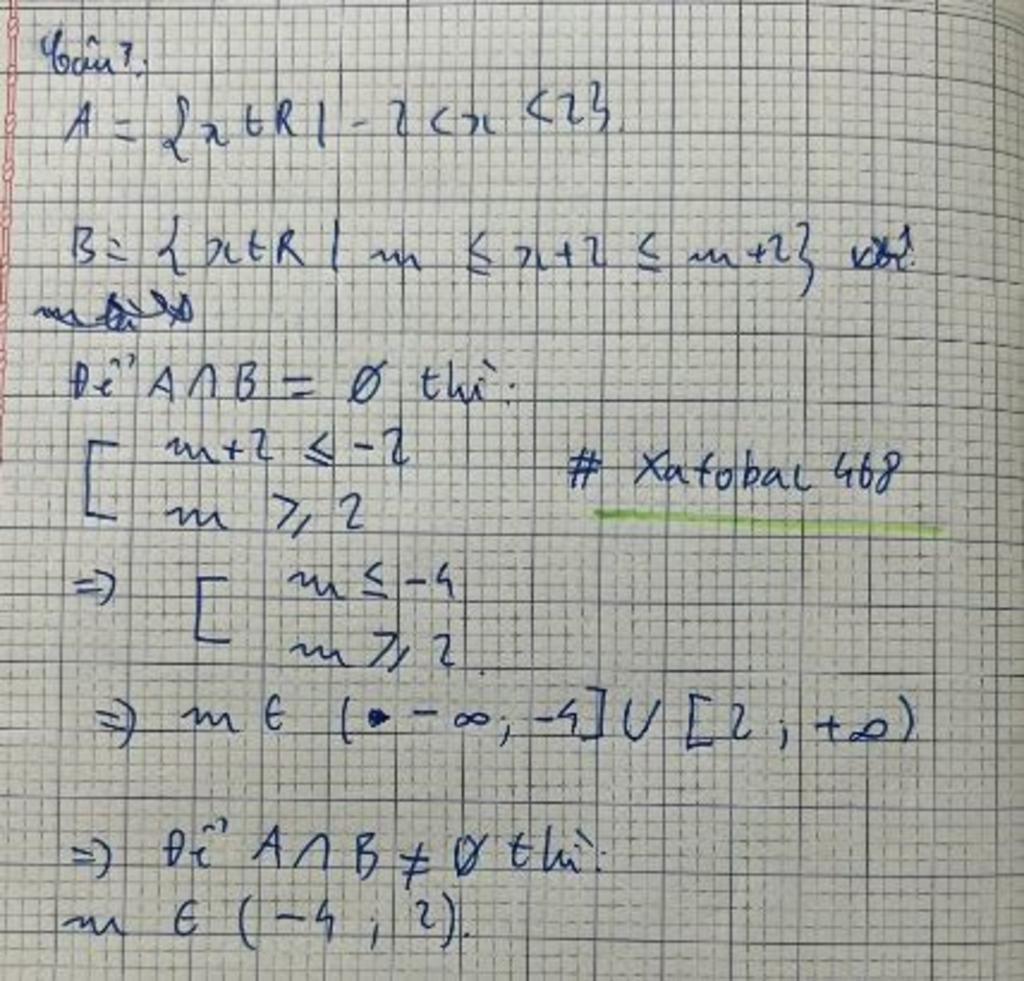 Câu 2:
A = {x ∈ R | -2 < x < 2}.
B = {x ∈ R | m ≤ x+2 ≤ m+2}
Để A ∩ B = Ø thì:
[ m+2 ≤ -2
m ≥ 2
# Xatobac 468
=> [ m ≤ -4
m ≥ 2
=> m ∈ (-∞; -4] ∪ [2; +∞)
=> Để A ∩ B ≠ Ø thì:
m ∈ (-4; 2).